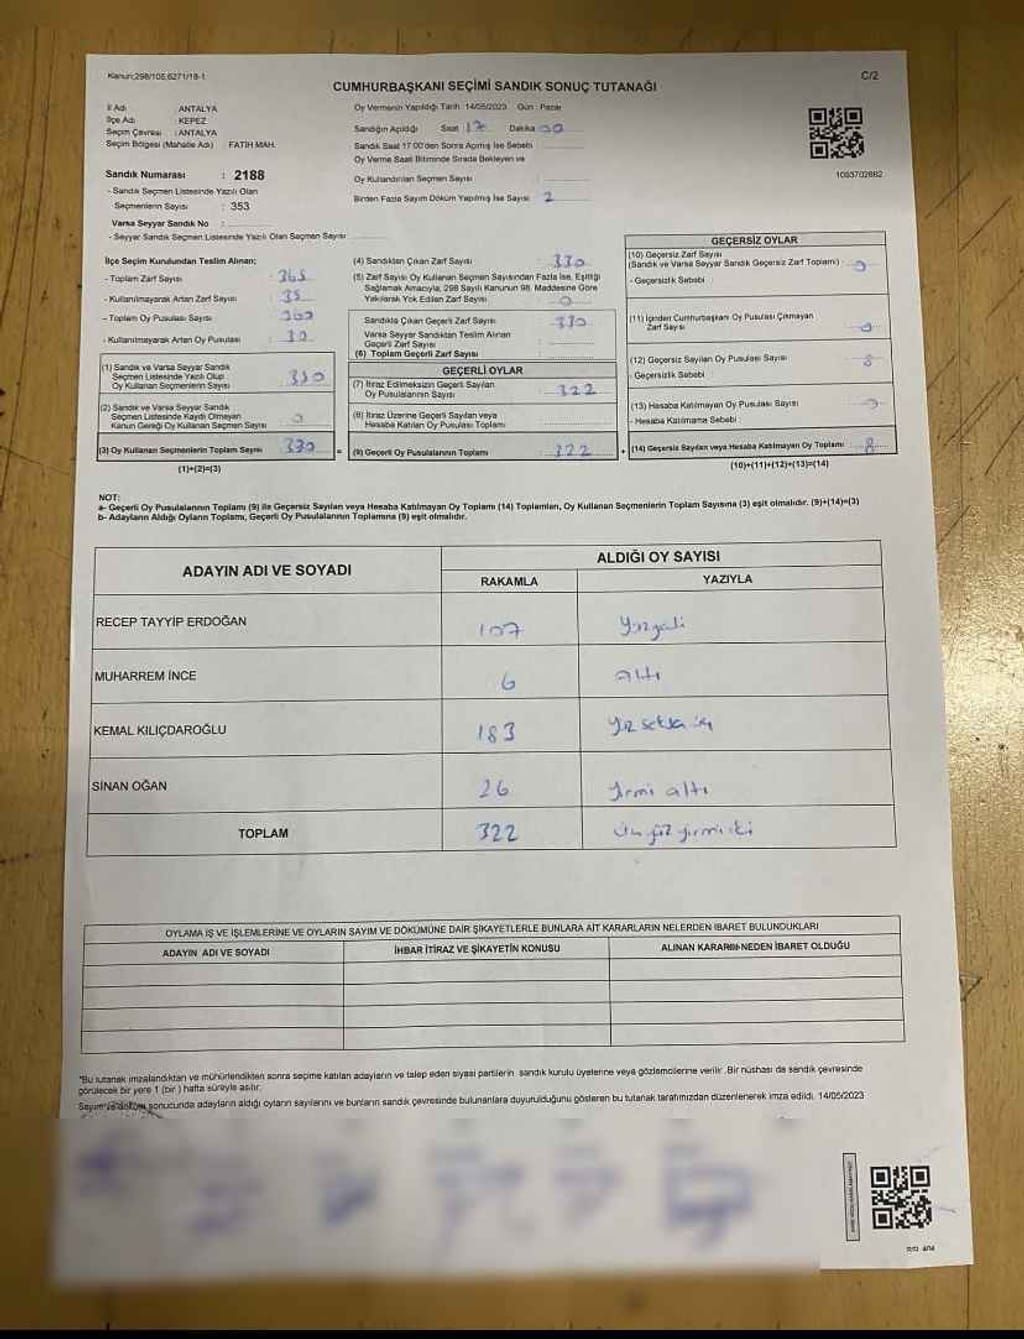 Kanun:298/105,6271/18-1
C/2
CUMHURBAŞKANI SEÇİMİ SANDIK SONUÇ TUTANAĞI
İl Adı ANTALYA
İlçe Adı : KEPEZ
Seçim Çevresi : ANTALYA
Seçim Bölgesi (Mahalle Adı) : FATİH MAH.
Sandık Numarası : 2188
- Sandık Seçmen Listesinde Yazılı Olan
Seçmenlerin Sayısı : 353
Varsa Seyyar Sandık No :
- Seyyar Sandık Seçmen Listesinde Yazılı Olan Seçmen Sayısı
Oy Vermenin Yapıldığı Tarih : 14/05/2023 Gün : Pazar
Sandığın Açıldığı Saat 17 Dakika 00
Sandık Saat 17:00'den Sonra Açılmış İse Sebebi
Oy Verme Saati Bitiminde Sırada Bekleyen ve
Oy Kullandırılan Seçmen Sayısı
Birden Fazla Sayım Döküm Yapılmış İse Sayısı : 2
1093702882
İlçe Seçim Kurulundan Teslim Alınan;
- Toplam Zarf Sayısı : 365
- Kullanılmayarak Artan Zarf Sayısı : 35
- Toplam Oy Pusulası Sayısı
- Kullanılmayarak Artan Oy Pusulası : 30
(1) Sandık ve Varsa Seyyar Sandık
Seçmen Listesinde Yazılı Olup
Oy Kullanan Seçmenlerin Sayısı : 330
(2) Sandık ve Varsa Seyyar Sandık
Seçmen Listesinde Kaydı Olmayan
Kanun Gereği Oy Kullanan Seçmen Sayısı : 0
(3) Oy Kullanan Seçmenlerin Toplam Sayısı : 330
(1)+(2)=(3)
(4) Sandıktan Çıkan Zarf Sayısı : 330
(5) Zarf Sayısı Oy Kullanan Seçmen Sayısından Fazla İse, Eşitliği
Sağlamak Amacıyla, 298 Sayılı Kanunun 98. Maddesine Göre
Yakılarak Yok Edilen Zarf Sayısı : 0
Sandıkta Çıkan Geçerli Zarf Sayısı : 330
Varsa Seyyar Sandıktan Teslim Alınan
Geçerli Zarf Sayısı
(6) Toplam Geçerli Zarf Sayısı
GEÇERLİ OYLAR
(7) İtiraz Edilmeksizin Geçerli Sayılan
Oy Pusulasının Sayısı : 322
(8) İtiraz Üzerine Geçerli Sayılan veya
Hesaba Katılan Oy Pusulası Toplamı
(9) Geçerli Oy Pusulalarının Toplamı : 322
GEÇERSİZ OYLAR
(10) Geçersiz Zarf Sayısı
(Sandık ve Varsa Seyyar Sandık Geçersiz Zarf Toplamı) : 0
- Geçersizlik Sebebi :
(11) İçinden Cumhurbaşkanı Oy Pusulası Çıkmayan
Zarf Sayısı : 0
(12) Geçersiz Sayılan Oy Pusulası Sayısı : 8
- Geçersizlik Sebebi
(13) Hesaba Katılmayan Oy Pusulası Sayısı : 0
- Hesaba Katılmama Sebebi :
(14) Geçersiz Sayılan veya Hesaba Katılmayan Oy Toplamı : 8
(10)+(11)+(12)+(13)=(14)
NOT:
a- Geçerli Oy Pusulalarının Toplamı (9) ile Geçersiz Sayılan veya Hesaba Katılmayan Oy Toplamı (14) Toplamları, Oy Kullanan Seçmenlerin Toplam Sayısına (3) eşit olmalıdır. (9)+(14)=(3)
b- Adayların Aldığı Oyların Toplamı, Geçerli Oy Pusulalarının Toplamına (9) eşit olmalıdır.
ADAYIN ADI VE SOYADI ALDIĞI OY SAYISI
RAKAMLA YAZIYLA
RECEP TAYYİP ERDOĞAN 107 Yüzyedi
MUHARREM İNCE 6 altı
KEMAL KILIÇDAROĞLU 183 Yüz seksen üç
SİNAN OĞAN 26 Yirmi altı
TOPLAM 322 Üç yüz yirmi iki
OYLAMA İŞ VE İŞLEMLERİNE VE OYLARIN SAYIM VE DÖKÜMÜNE DAİR ŞİKAYETLERLE BUNLARA AİT KARARLARIN NELERDEN İBARET BULUNDUKLARI
ADAYIN ADI VE SOYADI İHBAR İTİRAZ VE ŞİKAYETİN KONUSU ALINAN KARARIN NEDEN İBARET OLDUĞU
"Bu tutanak imzalandıktan ve mühürlendikten sonra seçime katılan adayların ve talep eden siyasi partilerin sandık kurulu üyelerine veya gözlemcilerine verilir. Bir nüshası da sandık çevresinde
görülecek bir yere 1 (bir) hafta süreyle asılır.
Sayım ve döküm sonucunda adayların aldığı oyların sayılarını ve bunların sandık çevresinde bulunanlara duyurulduğunu gösteren bu tutanak tarafımızdan düzenlenerek imza edildi. 14/05/2023